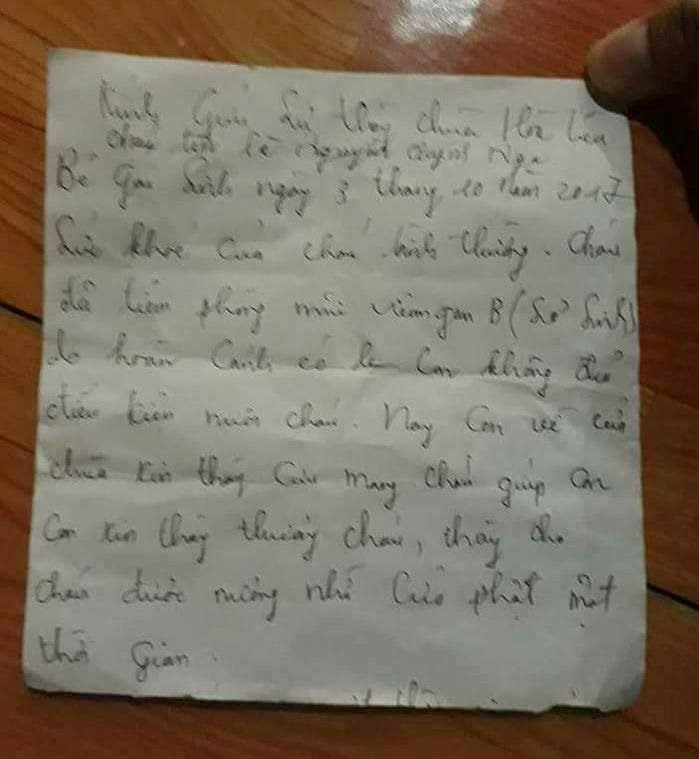 Kính Gửi Sư thầy chùa Hoa Liên
cháu tên Lê Nguyễn Quỳnh Nga
Bé gái Sinh ngày 3 tháng 10 năm 2017
Sức khỏe của cháu bình thường. Cháu
đã tiêm phòng mũi viêm gan B (Sơ Sinh)
do hoàn Cảnh có lẽ Con không đủ
điều kiện nuôi cháu. Nay Con về cửa
chùa xin thầy Cưu mang cháu giúp con
Con xin thầy thương cháu, thầy cho
cháu được nương nhờ Cửa phật một
thời Gian.